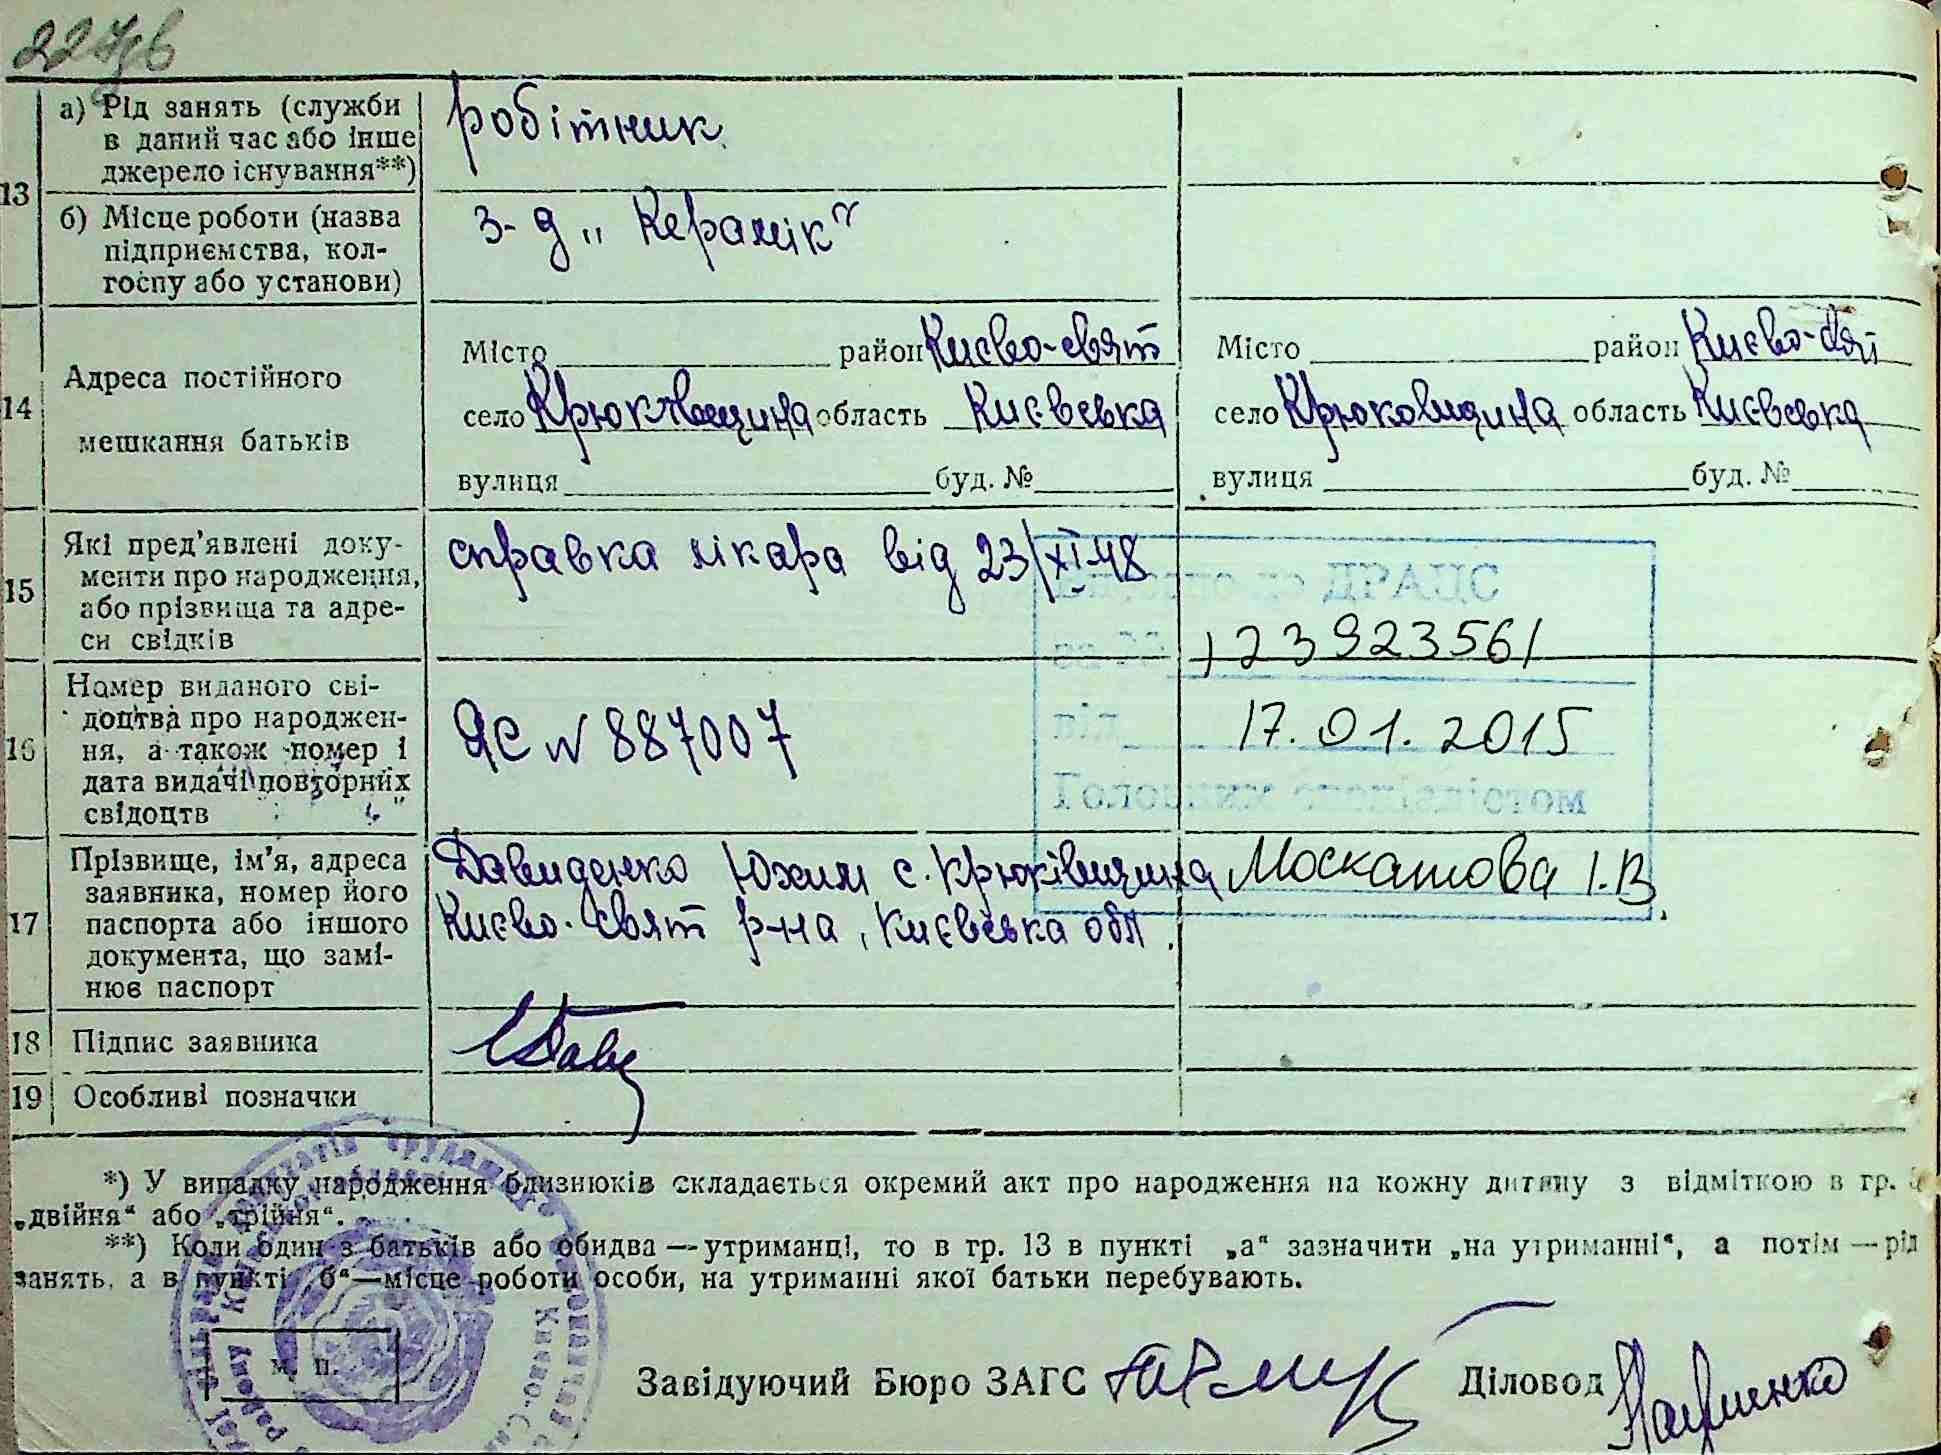 227зв
13
а) Рід занять (служби
в даний час або інше
джерело існування**)
робітник
б) Місце роботи (назва
підприємства, кол-
госпу або установи)
з-д „Керамік"
14
Адреса постійного
мешкання батьків
Місто район Києво-свят
село область Київська
вулиця буд. №
Місто район Києво-свят
село Крюковщина область Київська
вулиця буд. №
15
Які пред'явлені доку-
менти про народження,
або прізвища та адре-
си свідків
справка лікара від 23/XI-48
ДРАЦС
за № 123923561
16
Номер виданого сві-
доцтва про народжен-
ня, а також номер і
дата видачі повторних
свідоцтв
ЯС № 887007
від 17.01.2015
17
Прізвище, ім'я, адреса
заявника, номер його
паспорта або іншого
документа, що замі-
нює паспорт
Давиденко Юхим с. Крюківщина
Києво-свят р-на, Київська обл.
Москатова І.В.
18
Підпис заявника
19
Особливі позначки
*) У випадку народження близнюків складається окремий акт про народження на кожну дитину з відміткою в гр.
„двійня“ або „трійня“.
**) Коли один з батьків або обидва — утриманці, то в гр. 13 в пункті „а“ зазначити „на утриманні“, а потім — рід
занять, а в пункті „б“ — місце роботи особи, на утриманні якої батьки перебувають.
м. п.
Завідуючий Бюро ЗАГС
Діловод